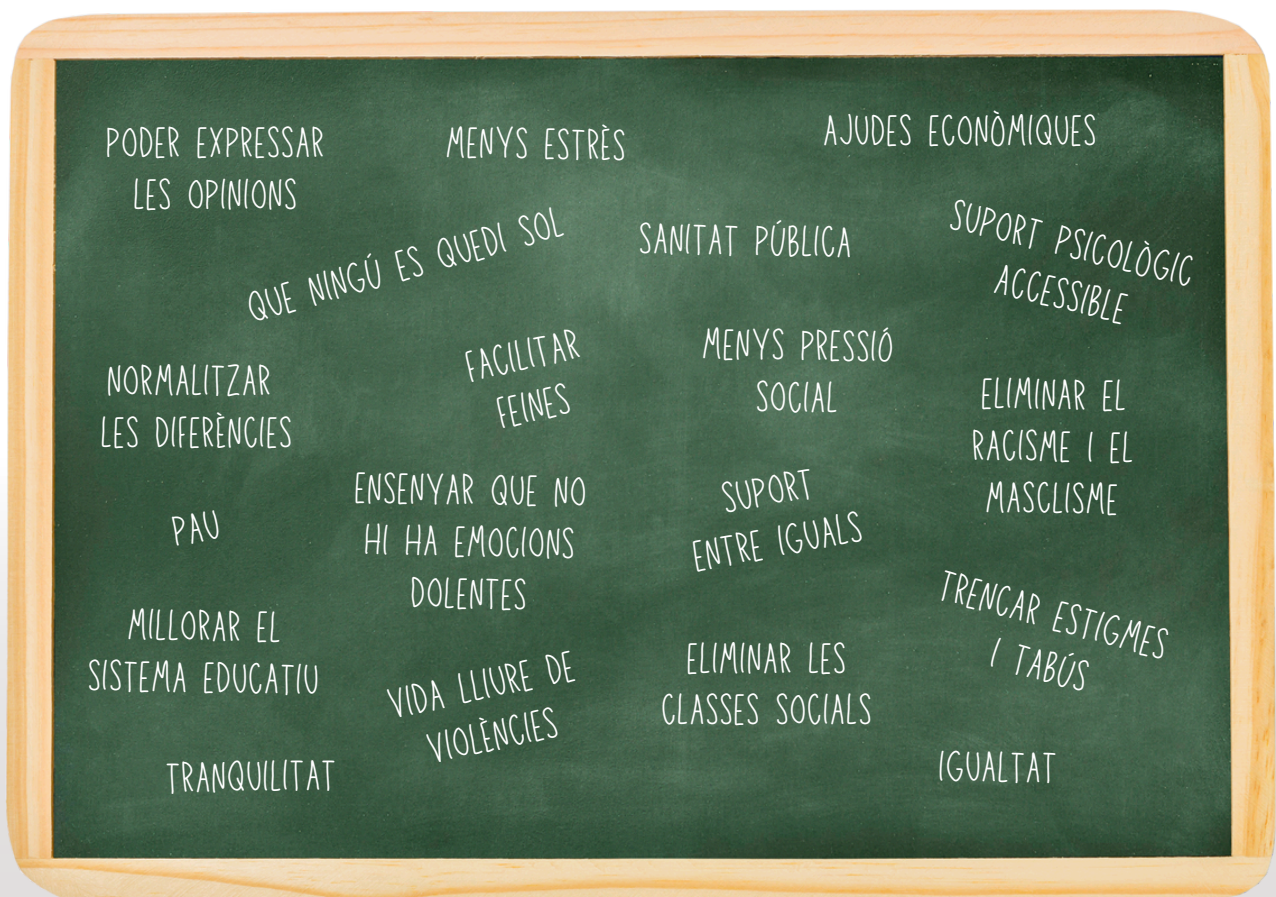 PODER EXPRESSAR
LES OPINIONS
MENYS ESTRÈS
AJUDES ECONÒMIQUES
QUE NINGÚ ES QUEDI SOL
SANITAT PÚBLICA
SUPORT PSICOLÒGIC
ACCESSIBLE
NORMALITZAR
LES DIFERÈNCIES
FACILITAR
FEINES
MENYS PRESSIÓ
SOCIAL
ELIMINAR EL
RACISME I EL
MASCLISME
PAU
ENSENYAR QUE NO
HI HA EMOCIONS
DOLENTES
SUPORT
ENTRE IGUALS
MILLORAR EL
SISTEMA EDUCATIU
VIDA LLIURE DE
VIOLÈNCIES
ELIMINAR LES
CLASSES SOCIALS
TRENCAR ESTIGMES
I TABÚS
TRANQUILITAT
IGUALTAT